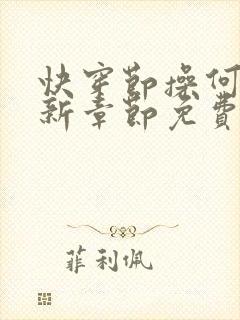 快穿節操何
新章節免費
菲利佩